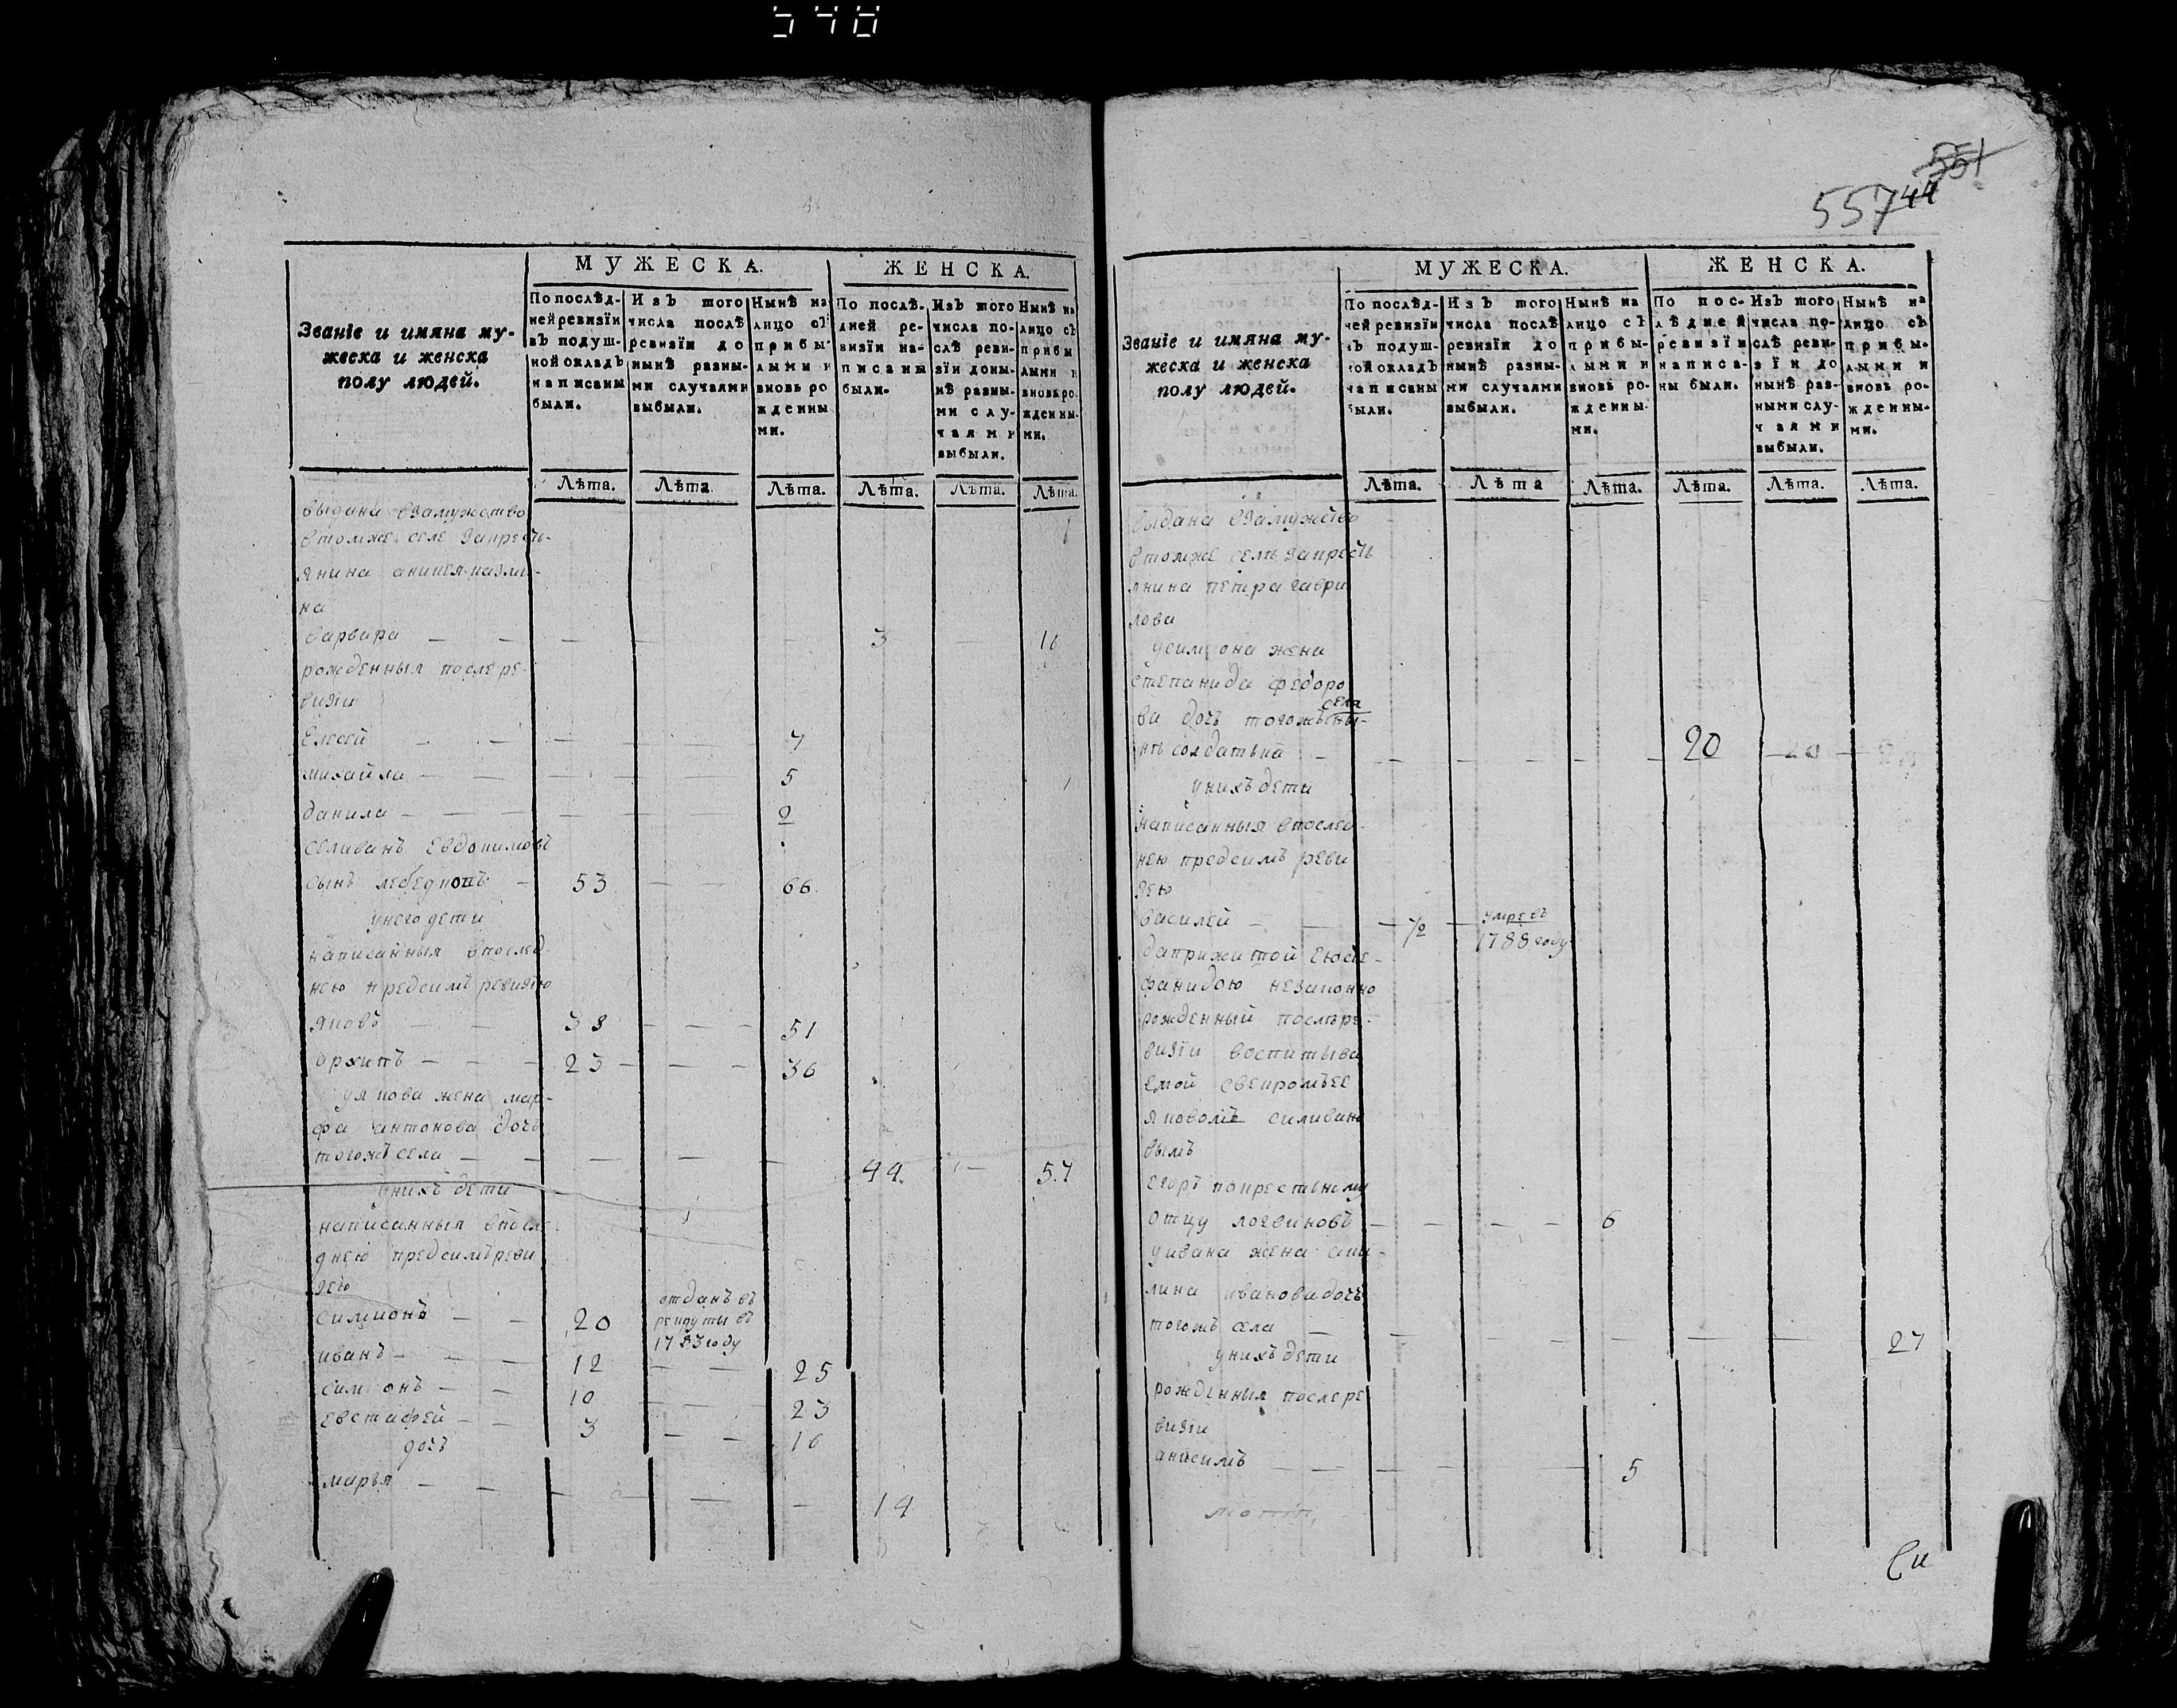 548
551
557 44
МУЖЕСКА.
ЖЕНСКА.
Званіе и имяна му-
жеска и женска
полу людей.
По послѣд-
ней ревизіи
въ подуш-
ной окладъ
написаны
были.
Изъ того
числа послѣ
ревизіи до
нынѣ разны-
ми случаями
выбыли.
Нынѣ на
лицо съ
прибы-
лыми и
вновь ро
жденны
ми.
По послѣ-
дней ре-
визіи на-
писаны
были.
Изъ того
числа по-
слѣ реви-
зіи доны-
нѣ разны-
ми слу-
чаями
выбыли.
Нынѣ на
лицо съ
прибы
лыми и
вновь ро
жденны-
ми.
Лѣта. Лѣта. Лѣта. Лѣта. Лѣта. Лѣта.
выдана взамужство
втомже селе закресть-
янина
на
варвара — — — 3 — 16
рожденныя после ре-
визіи
Елесей — — — 7
михайла — — — 5
данила — — — 2
селиванъ евдокимовъ
сынъ — 53 — — 66
унего дети
написанныя впослед-
нею предсимъ ревизію
яковъ — — 38 — — — 51
архипъ — — — 23 — — — 36
уякова жена мар-
фа антонова дочь
тогожъ села — — — — — 44. — 57
унихъ дети
написанныя впосле
днею предсимъ реви
зею
симионъ — — 20 отданъ въ
рекруты въ
1783 году
иванъ — — — 12 — — 25
симионъ — — 10 — — — 23
евстафей — — 3 — — 16
дочь
марья — — — — — — 14
МУЖЕСКА.
ЖЕНСКА.
Званіе и имяна му-
жеска и женска
полу людей.
По послѣд-
ней ревизіи
въ подуш-
ной окладъ
написаны
были.
Изъ того
числа послѣ
ревизіи до
нынѣ разны-
ми случаями
выбыли.
Нынѣ на
лицо съ
прибы-
лыми и
вновь ро-
жденны-
ми.
По пос-
лѣдней
ревизіи
написа-
ны были.
Изъ того
числа по-
слѣ реви-
зіи до
нынѣ раз-
ными слу-
чаями
выбыли.
Нынѣ на
лицо съ
прибы-
лыми и
вновь ро-
жденны-
ми.
Лѣта. Лѣта Лѣта. Лѣта. Лѣта. Лѣта.
выдана взамужство
втомже селѣ закресть
янина петра гаври
лова
усимиона жена
степанида федоро
ва дочь тогожъ села
солдатка — — — — — — 20
унихъ дети
написанныя впослед-
нею предсимъ реви
зею
василей — — — 1/2 — умре въ
1788 году
даприжитой ею сте-
фанидою незаконно
рожденный послѣ ре-
визіи воспитыва
емой свекромъ ее
яковомъ селивано
вымъ
егоръ покрестному
отцу логвиновъ — — — — 6
уивана жена аку-
лина иванова дочь
тогожъ села — — — — — — — 27
унихъ дети
рожденныя после ре
визіи
анисимъ — — — — — 5